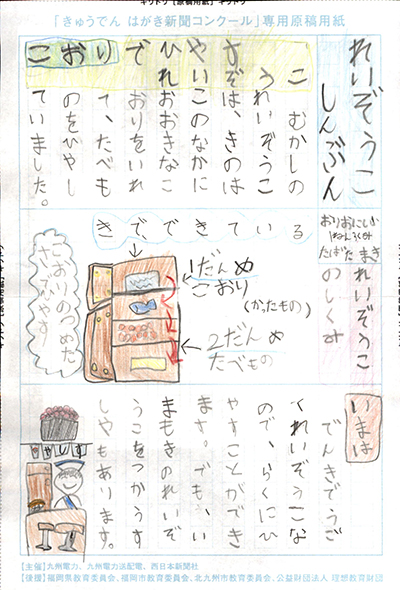 「きゅうでん はがき新聞コンクール」専用原稿用紙
れいぞうこ
しんぶん
たばた まき
こおりでひやす
れいぞうこ
むかしの
れいぞうこ
は、きのは
このなかに
おおきなこ
おりをいれ
て、たべも
のをひやし
ていました。
れいぞうこ
のしくみ
きで、できている
1だんめ
こおり
(かったもの)
2だんめ
たべもの
こおりのつめた
さでひやす!
いまは
でんきでうご
くれいぞうこな
ので、らくにひ
やすことができ
ます。でも、い
まもきのれいぞ
うこをつかうす
しやもあります。
【主催】九州電力、九州電力送配電、西日本新聞社
【後援】福岡県教育委員会、福岡市教育委員会、北九州市教育委員会、公益財団法人 理想教育財団